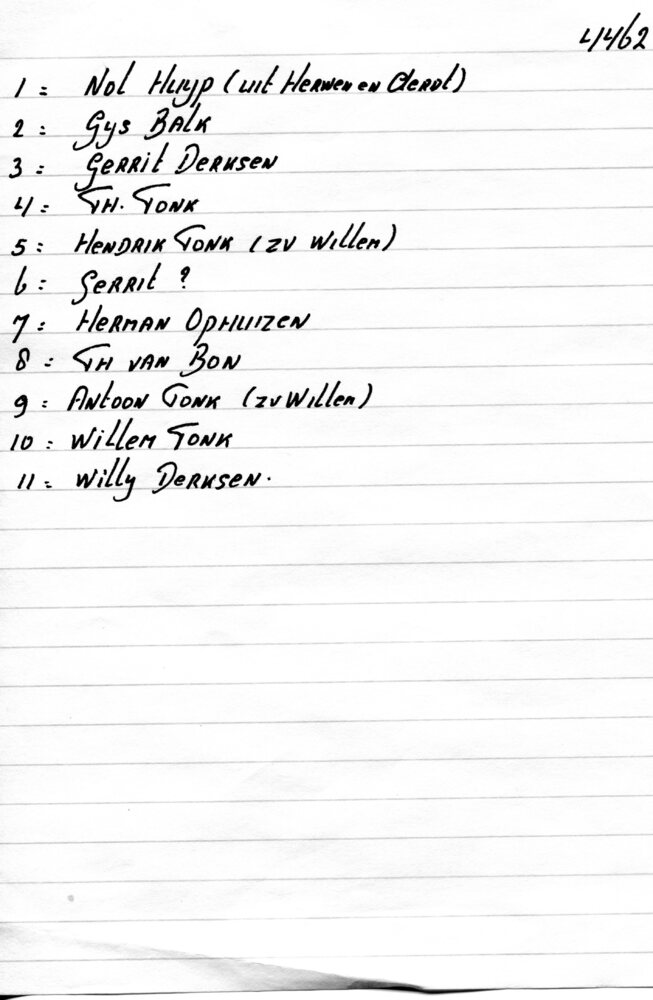 4462
1 = Nol Huyp (uit Herwen en Aerdt)
2 : Gys Balk
3 = Gerrit Derksen
4 = Th. Tonk
5 : Hendrik Tonk (zv Willem)
6 : Gerrit ?
7 : Herman Ophuizen
8 : Th van Bon
9 : Antoon Tonk (zv Willem)
10 : Willem Tonk
11 = Willy Derksen.